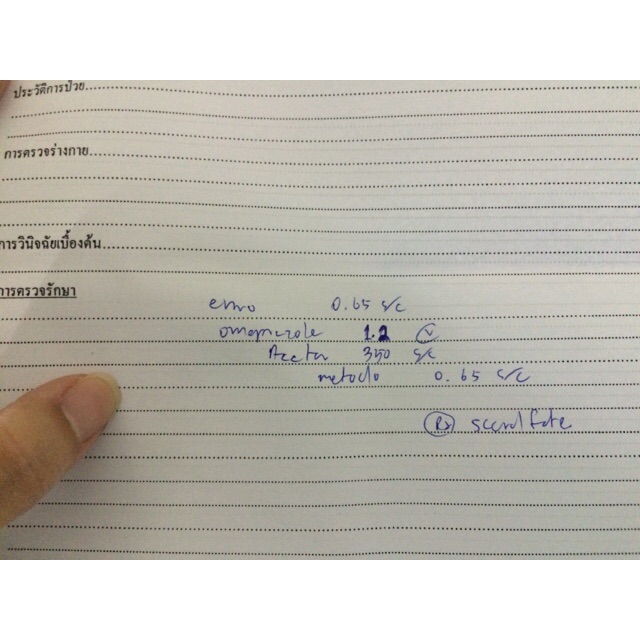 ประวัติการป่วย
การตรวจร่างกาย
การวินิจฉัยเบื้องต้น
การตรวจรักษา
enro 0.65 s/c
omeprazole 1.2 v
Acetar 350 s/c
metoclo 0.65 s/c
Rx sucralfate